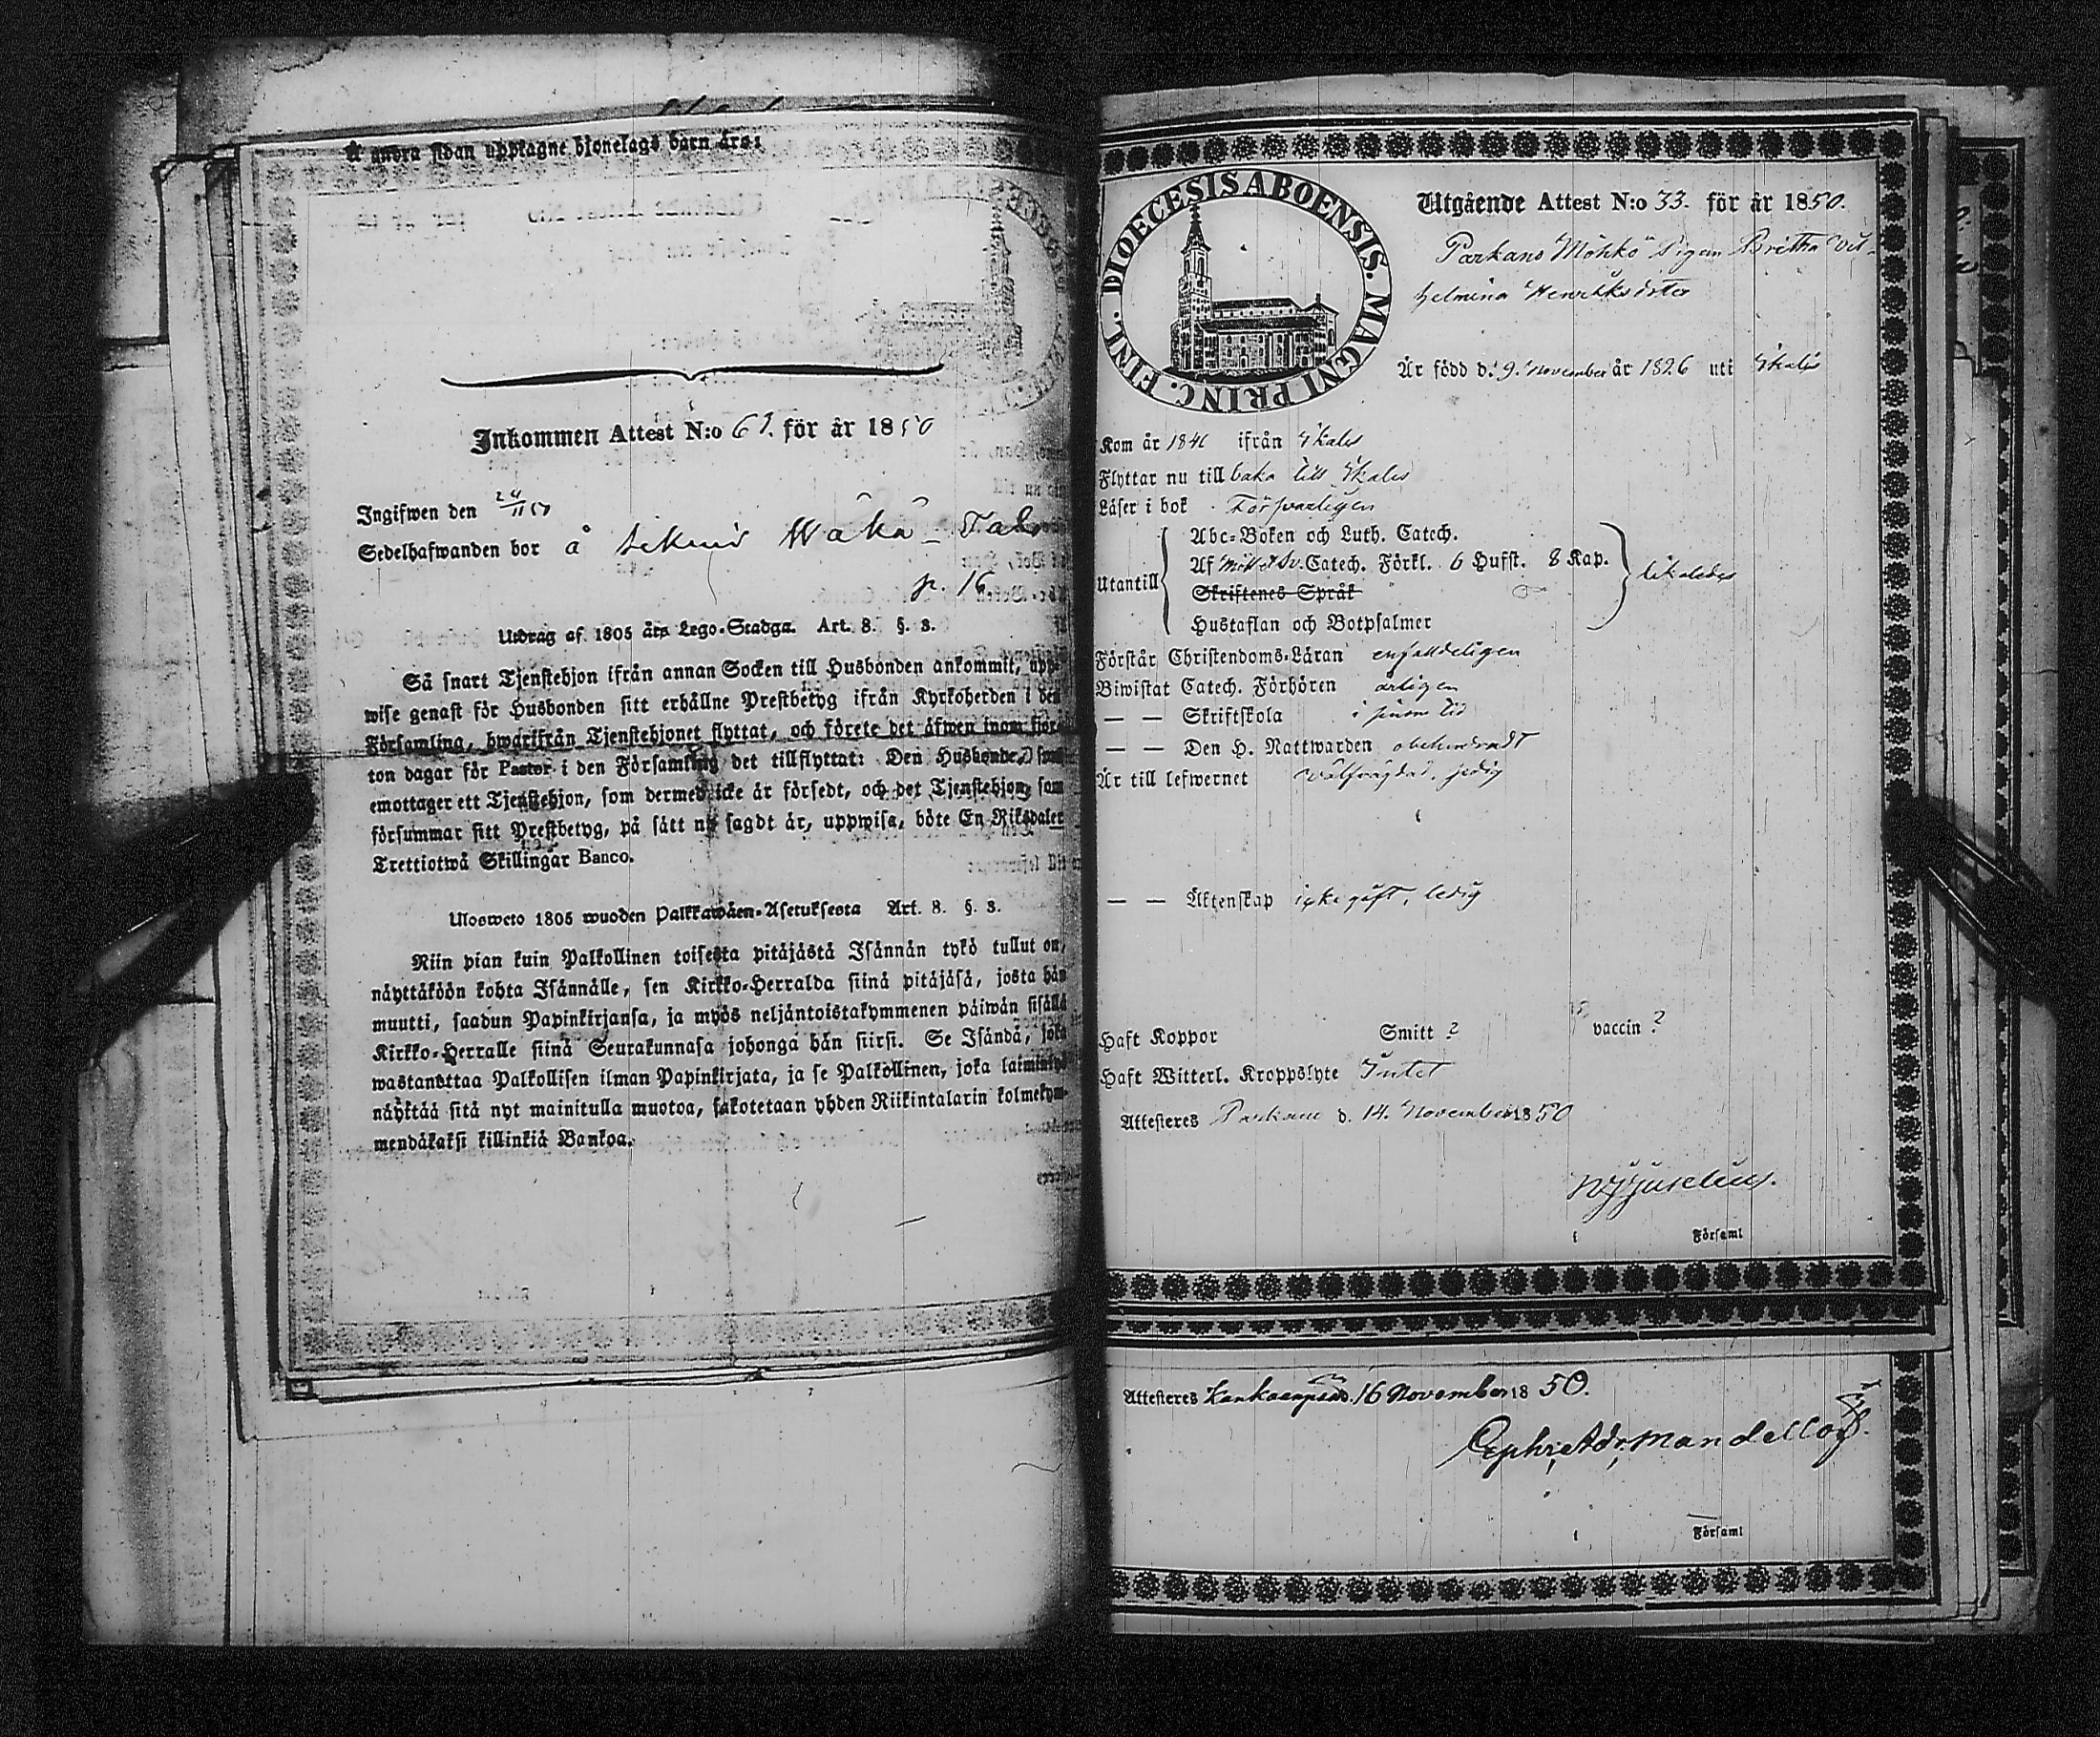 å andra sidan upptagne hjonelags barn äro:
Inkommen Attest N:o 61. för år 1850
Ingifwen den 24/11 50
Sedelhafwanden bor å
p. 16
Utdrag af 1805 års Lego-Stadga. Art. 8. §. 3.
Så snart Tjenstehjon ifrån annan Socken till Husbonden ankommit, upp-
wise genast för Husbonden sitt erhållne Prestbetyg ifrån Kyrkoherden i den
Församling, hwarifrån Tjenstehjonet flyttat, och förete det äfwen inom fjor-
ton dagar för Pastor i den Församling det tillflyttat: Den Husbonde, som
emottager ett Tjenstehjon, som dermed icke är försedt, och det Tjenstehjon, som
försummar sitt Prestbetyg, på sätt nu sagdt är, uppwisa, böte En Riksdaler
Trettiotwå Skillingar Banco.
Ulosweto 1805 wuoden Palkkawäen-Asetuksesta Art. 8. §. 3.
Niin pian kuin Palkollinen toisesta pitäjästä Isännän tykö tullut on,
näyttäköön kohta Isännälle, sen Kirkko-Herralda siinä pitäjäsä, josta hän
muutti, saadun Papinkirjansa, ja myös neljäntoistakymmenen päiwän sisällä
Kirkko-Herralle siinä Seurakunnasa johonga hän siirsi. Se Isändä, joka
wastanottaa Palkollisen ilman Papinkirjata, ja se Palkollinen, joka laiminlyö
näyttää sitä nyt mainitulla muotoa, sakotetaan yhden Riikintalarin kolmekym-
mendäkaksi killinkiä Bankoa.
DIOECESIS ABOENSIS. MAGNI PRINC. FINL.
Utgående Attest N:o 33. för år 1850.
Parkano Möhkö Pigan Britha Vil-
helmina Henriksdoter
Är född d. 9. November år 1826 uti Ikalis
Kom år 1846 ifrån Ikalis
Flyttar nu till baka till Ikalis
Läser i bok Försvarligen
Utantill
Abc-Boken och Luth. Catech.
Af Catech. Förkl. 6 Hufst. 8 Kap.
Skriftenes Språk
Hustaflan och Botpsalmer
likaledes
Förstår Christendoms-Läran enfaldeligen
Biwistat Catech. Förhören årligen
— — Skriftskola i sinom tid
— — Den H. Nattwarden obehindradt
Är till lefwernet wälfrägdad, sedig
— — Äktenskap icke gift, ledig
Haft Koppor Smitt ? vaccin ?
Haft Witterl. Kroppslyte Intet
Attesteres Parkano d. 14. November 1850
Juselius.
i Församl
Attesteres Kankaanpää d. 16 November 18 50.
Ephr. Adr. Mandellöf.
i Församl